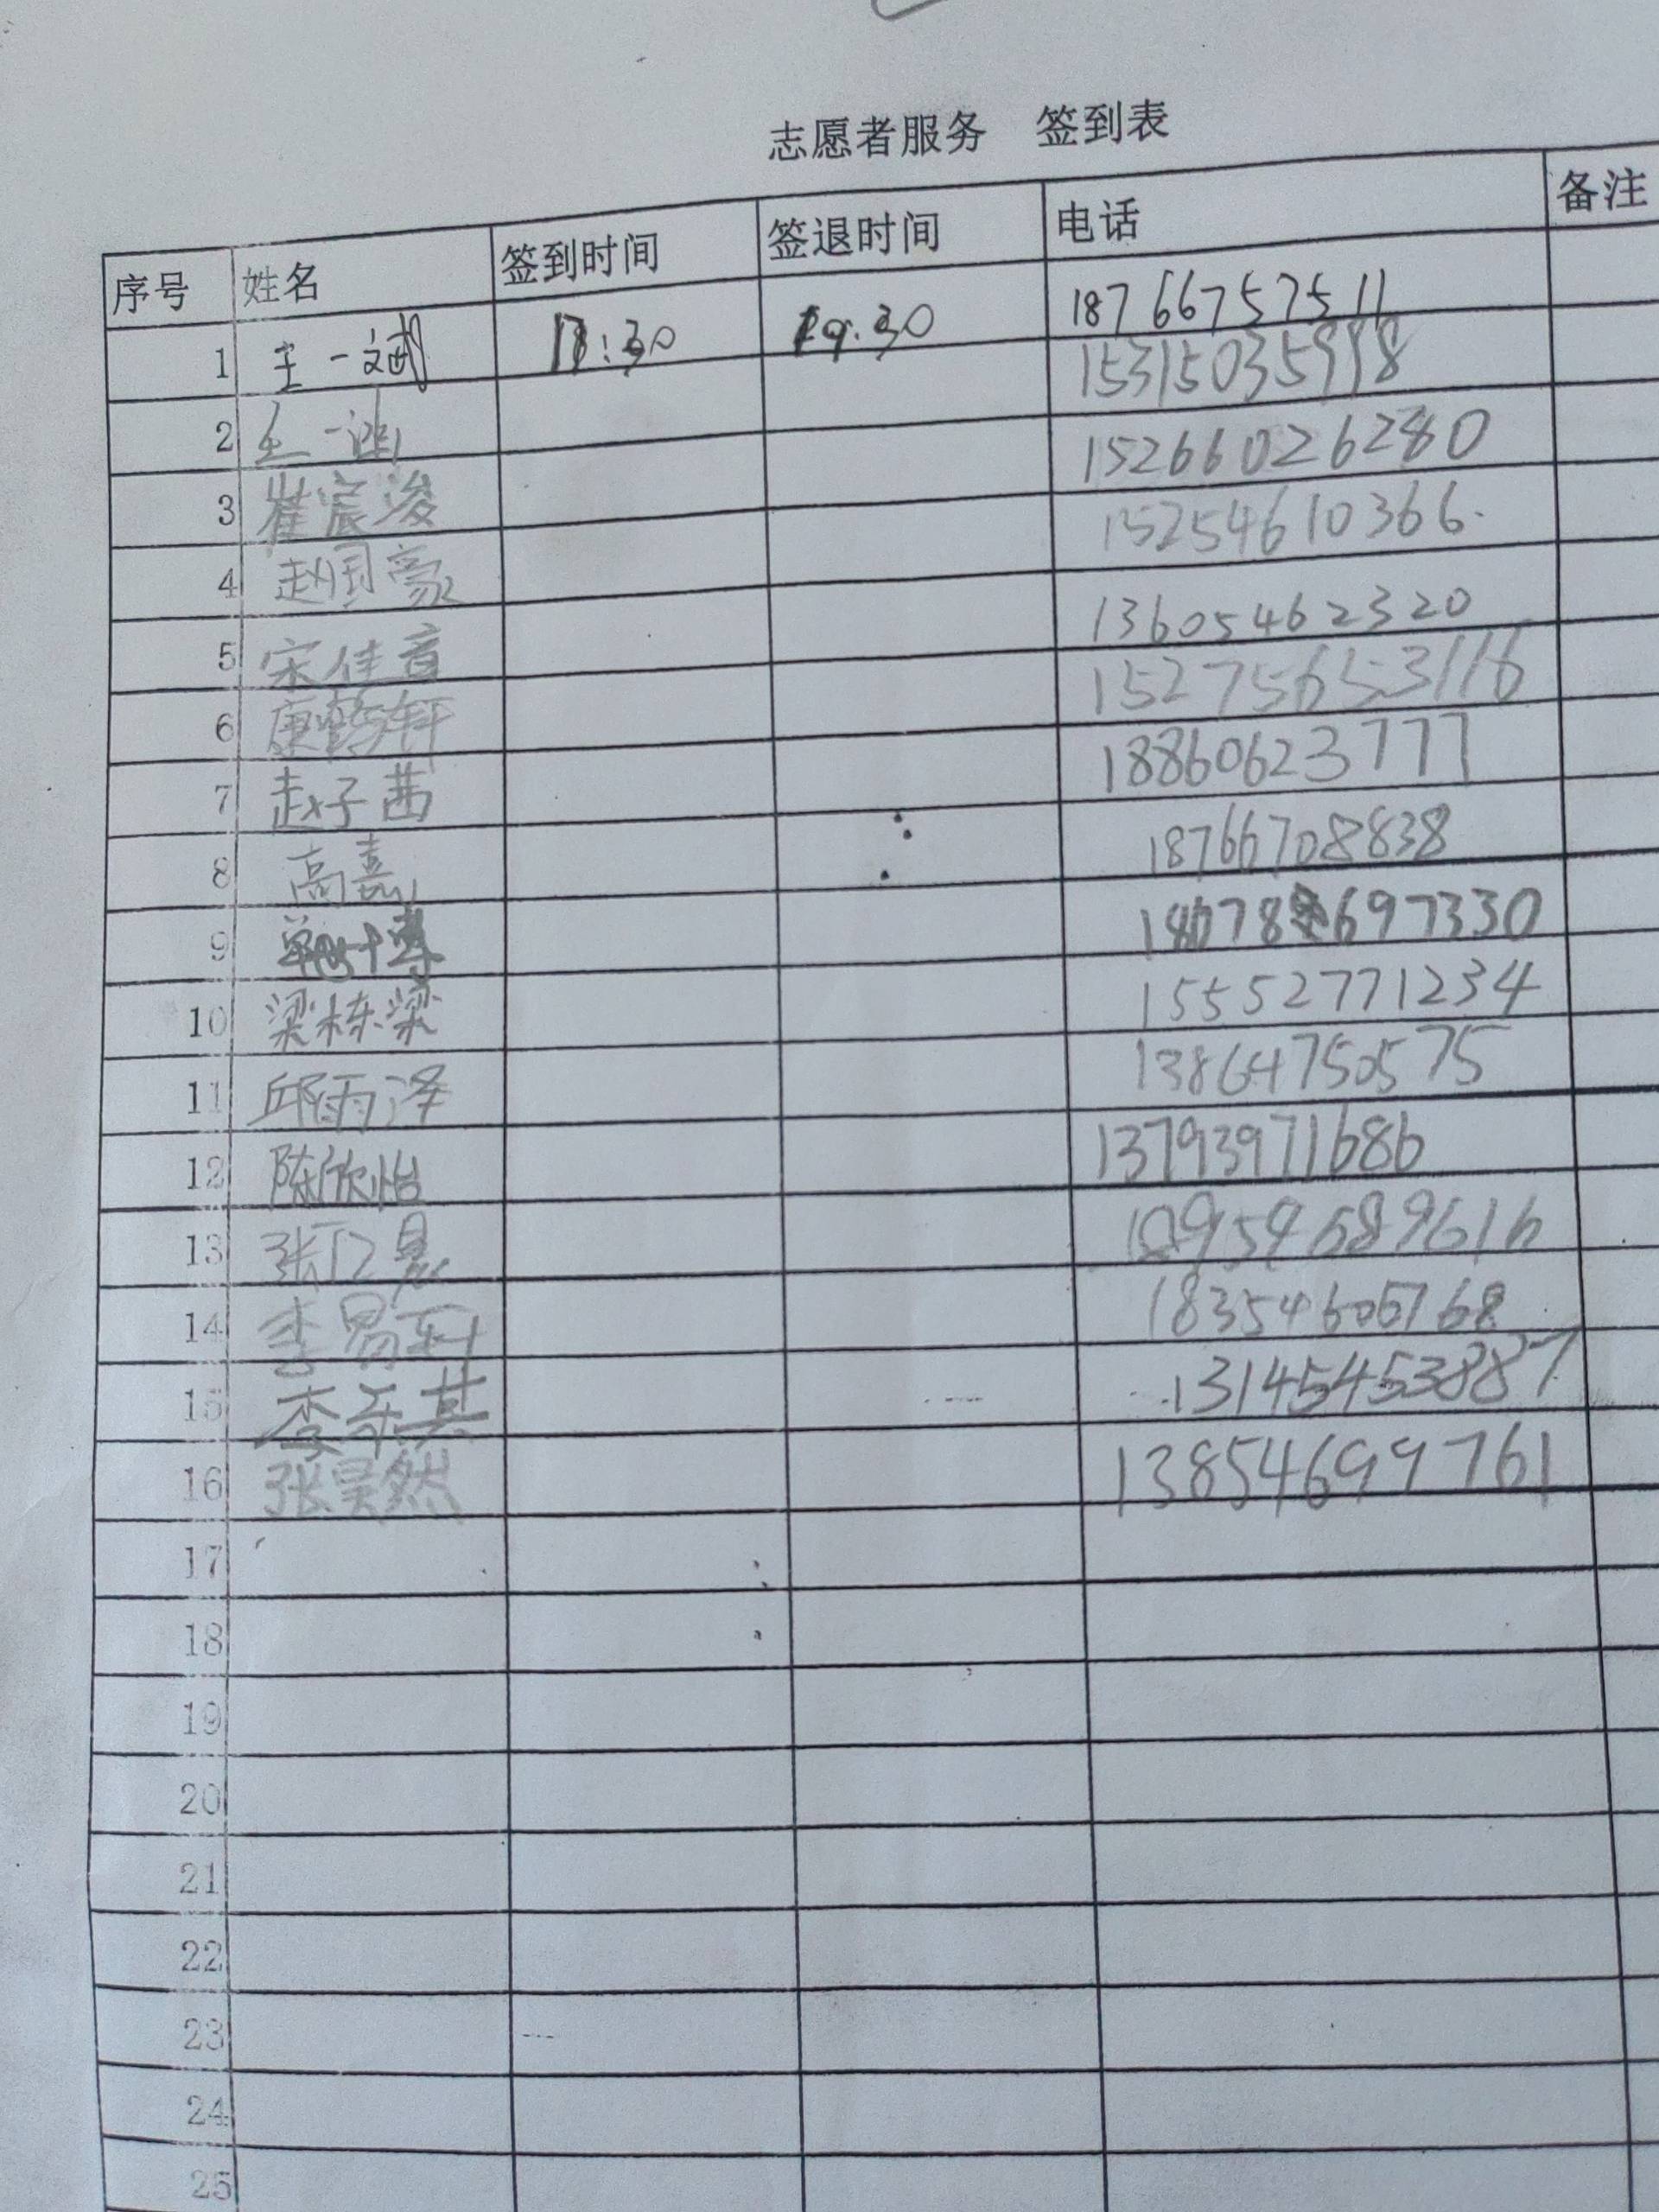 志愿者服务 签到表
序号 姓名 签到时间 签退时间 电话 备注
1 王一斌 18:30 19:30 18766757511
2 王一涵 15315035998
3 崔宸浚 15266026280
4 赵国豪 15254610366
5 宋佳音 13605462320
6 康 轩
7 赵子茜 18860623777
8 高嘉 18766708838
9 18678697330
10 梁栋梁 15552771234
11 邱雨泽 13864750575
12 陈欣怡 13793971686
13 张
14 李易 18354605768
15 李乐其 13145453887
16 张昊然 13854699761
17
18
19
20
21
22
23
24
25